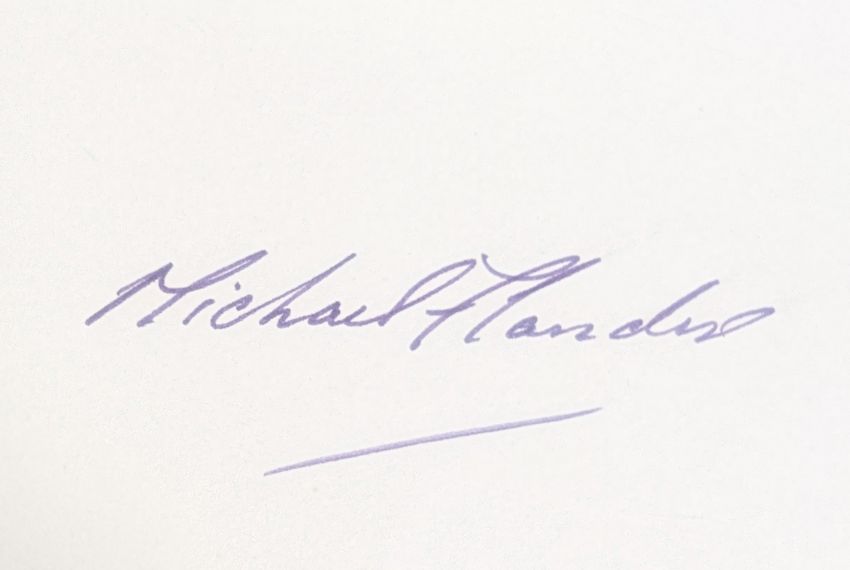 Michael Flanders